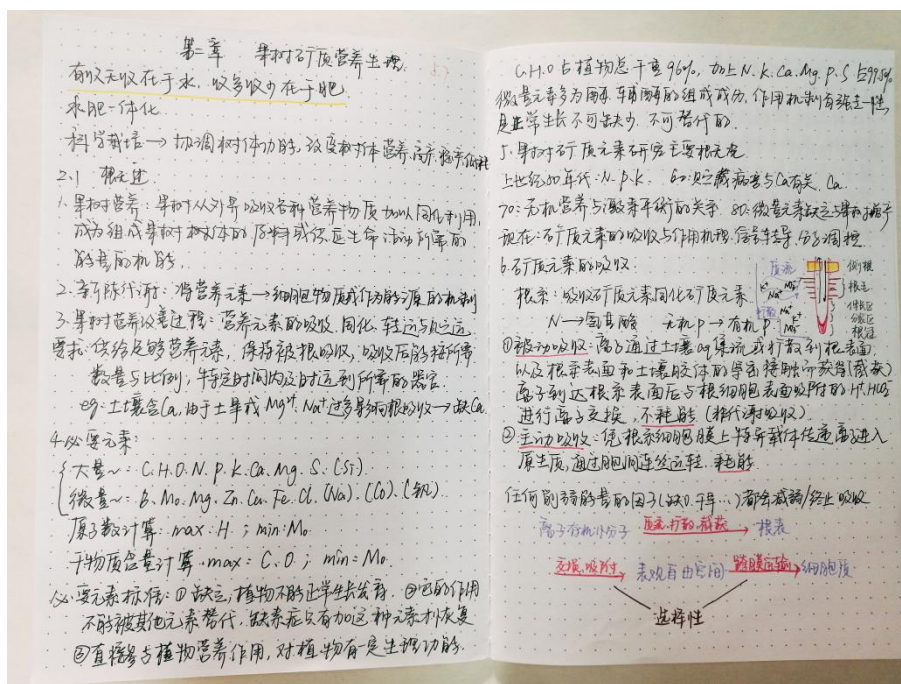 第二章 果树矿质营养生理
有收无收在于水,收多收少在于肥
水肥一体化
科学栽培→协调树体功能,改良树体营养,高产,稳产,低耗
2.1 概述
1.果树营养:果树从外界吸收各种营养物质加以同化利用,
成为组成果树树体的原料或保证生命活动所需的
能量的机能.
2.新陈代谢:将营养元素→细胞物质或作为能源的机制
3.果树营养改善过程:营养元素的吸收.同化.转运与反运
要求:供给足够营养元素,保持被根吸收,吸收后能按所需
数量与比例,特定时间内及时运到所需的器官.
eg:土壤含Ca,由于土旱或Mg²⁺.Na⁺过多影响根吸收→缺Ca
4.必要元素:
大量~:C.H.O.N.P.K.Ca.Mg.S.(Si).
微量~:B.Mo.Mg.Zn.Cu.Fe.Cl.(Na).(Co).(钒)
原子数计算:max:H ; min:Mo
干物质含量计算 max:C.O ; min=Mo
必要元素标准:①缺乏,植物不能正常生长发育.②它的作用
不能被其他元素替代,缺素症只有加这种元素才恢复
③直接参与植物营养作用,对植物有一定生理功能.
C.H.O占植物总干重96%,加上N.K.Ca.Mg.P.S占99.5%
微量元素多为酶.辅酶的组成成分,作用机制有强专一性
是正常生长不可缺少.不可替代的.
5.果树矿质元素研究主要概况
上世纪50年代:N.P.K. 60:贮藏病害与Ca有关.Ca
70:无机营养与激素平衡的关系. 80:微量元素缺乏与果树
现在:矿质元素的吸收与作用机理.信号转导.分子调控
6.矿质元素的吸收
根系:吸收矿质元素同化矿质元素
N→氨基酸 无机P→有机P
质流 K⁺ Na⁺ Mg²⁺ 扩散
侧根
根毛
伸长区
分裂区
根冠
①被动吸收:离子通过土壤aq集流或扩散到根表面.
以及根系表面和土壤胶体的导出接触而获得(截获)
离子到达根系表面后与根细胞表面吸附的H⁺.HCO₃⁻
进行离子交换,不耗能(非代谢吸收)
②主动吸收:凭根系细胞膜上特异载体传递离子进入
原生质,通过胞间连丝运转.耗能
任何削弱能量的因子(缺O.干旱…)都会减弱/终止吸收
离子有机小分子 质流.扩散.截获→ 根表
交换.吸附→ 表观自由空间 跨膜运输→细胞质
选择性